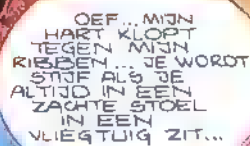 OEF... MIJN
HART KLOPT
TEGEN MIJN
RIBBEN... JE WORDT
STIJF ALS JE
ALTIJD IN EEN
ZACHTE STOEL
IN EEN
VLIEGTUIG ZIT...